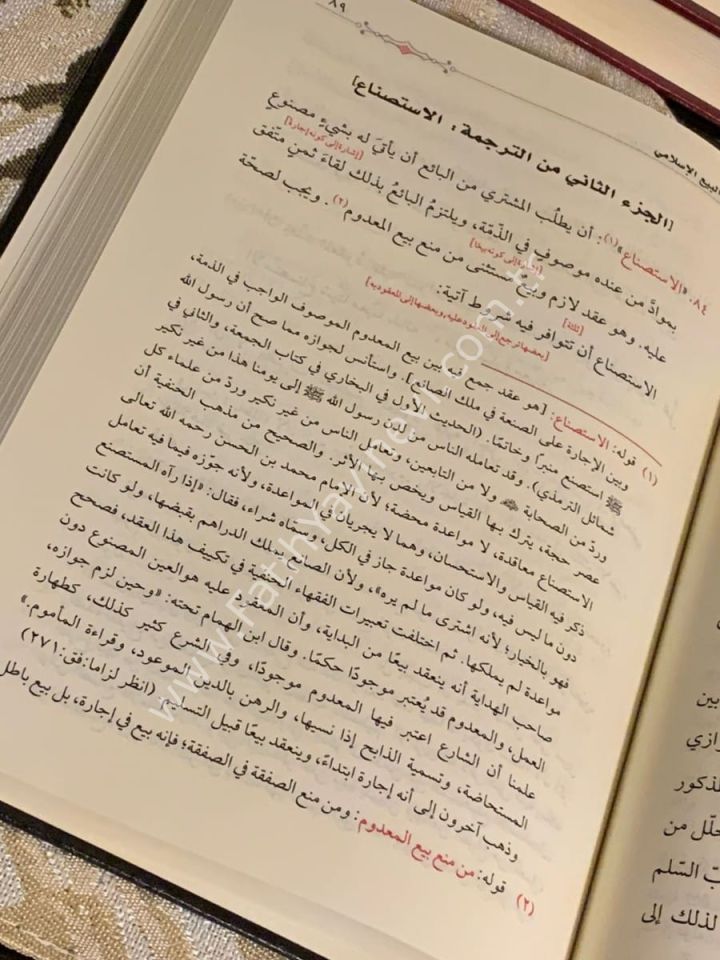 ٨٩
البيع الإسلامي
[الجزء الثاني من الترجمة: الاستصناع]
٨٤. «الاستصناع»(١): أن يطلُب المشتري من البائع أن يأتيَ له بشيءٍ مصنوعٍ
[إشارة إلى كونه إجارة]
بموادَّ من عنده موصوفٍ في الذمّة، ويلتزمُ البائعُ بذلك لقاءَ ثمنٍ متّفق
[إشارة إلى كونه بيعا]
عليه. وهو عقد لازم وبيع مستثنى من منع بيع المعدوم(٢). ويجب لصحّة
[ثلاثة]
الاستصناع أن تتوافر فيه شروط آتية:
[بعضها ترجع إلى المعقود عليه، وبعضها إلى المعقود به]
(١) قوله: الاستصناع: [هو عقد جمع فيه بين بيع المعدوم الموصوف الواجب في الذمة،
وبين الإجارة على الصنعة في ملك الصانع]. واستأنس لجوازه مما صح أن رسول الله
ﷺ استصنع منبرا وخاتمًا. (الحديث الأول في البخاري في كتاب الجمعة، والثاني في
شمائل الترمذي). وقد تعامله الناس من لدن رسول الله ﷺ إلى يومنا هذا من غير نكير
وردّ من الصحابة ولا من التابعين، وتعامل الناس من غير نكير وردّ من علماء كل
عصر حجة، يترك بها القياس ويخص بها الأثر. والصحيح من مذهب الحنفية أن
الاستصناع معاقدة، لا مواعدة محضة؛ لأن الإمام محمد بن الحسن رحمه الله تعالى
ذكر فيه القياس والاستحسان، وهما لا يجريان في المواعدة، ولأنه جوّزه فيما فيه تعامل
دون ما ليس فيه، ولو كان مواعدة جاز في الكل، وسمّاه شراء، فقال: «إذا رآه المستصنع
فهو بالخيار؛ لأنه اشترى ما لم يره»، ولأن الصانع يملك الدراهم بقبضها، ولو كانت
مواعدة لم يملكها. ثم اختلفت تعبيرات الفقهاء الحنفية في تكييف هذا العقد، فصحح
صاحب الهداية أنه ينعقد بيعًا من البداية، وأن المعقود عليه هو العين المصنوع دون
العمل، والمعدوم قد يُعتبر موجودًا حكمًا. وقال ابن الهمام تحته: «وحين لزم جوازه،
علمنا أن الشارع اعتبر فيها المعدوم موجودًا، وفي الشرع كثير كذلك، كطهارة
المستحاضة، وتسمية الذابح إذا نسيها، والرهن بالدين الموعود، وقراءة المأموم.»
وذهب آخرون إلى أنه إجارة ابتداءً، وينعقد بيعًا قبيل التسليم. (انظر لزاما: فق: ٢٧١)
(٢) قوله: من منع بيع المعدوم: ومن منع الصفقة في الصفقة؛ فإنه بيع في إجارة، بل بيع باطل
بين
رازي
لذكور
حلّل من
السّلم
لذلك إلى
www.FatihYayinevi.com.tr